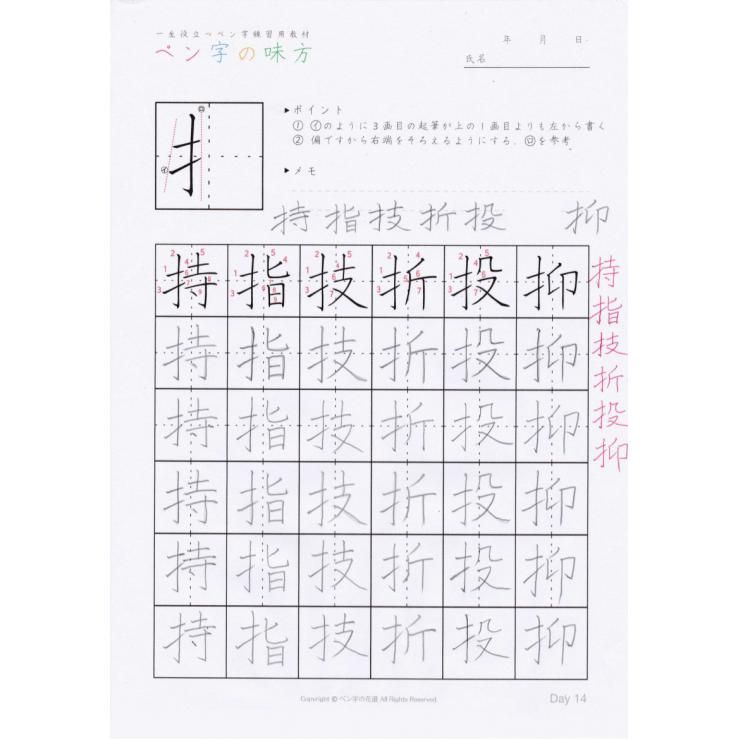 一生役立つペン字練習用教材
ペン字の味方
年 月 日
氏名
ロ
イ
扌
▶ポイント
① ㋑のように3画目の起筆が上の1画目よりも左から書く
② 偏ですから右端をそろえるようにする。㋺を参考
▶メモ
持指技折投 抑
持 指 技 折 投 抑
持 指 技 折 投 抑
持 指 技 折 投 抑
持 指 技 折 投 抑
持 指 技 折 投 抑
持 指 技 折 投 抑
持
指
技
折
投
抑
Copyright © ペン字の花道 All Rights Reserved.
Day 14